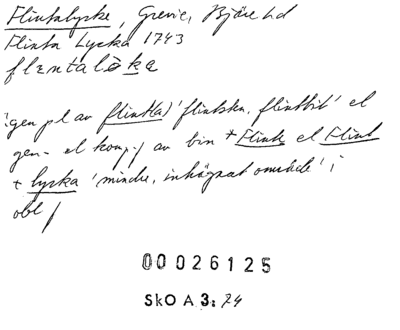 Flintalycke, Grevie, Bjäre hd
Flinta Lycka 1743
flentalòka
'gen pl av flint(a) 'flintsten, flintbit' el
gen- el komp-f av bin + Flink el Flint
+ lycka 'mindre, inhägnat område' i
obl f
00026125
SkO A 3: 24